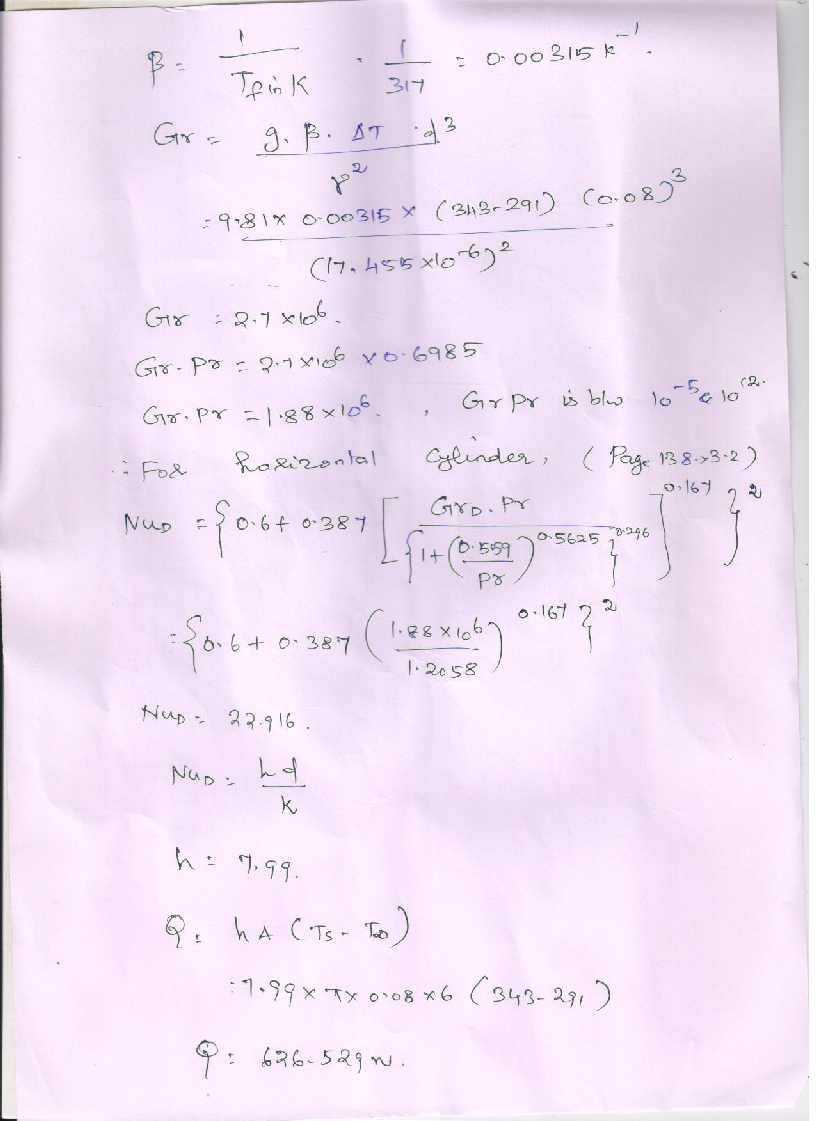 β = 1 / Tf in K · 1 / 317 = 0.00315 K⁻¹.
Gr = g. β. ΔT . d³ / γ²
= 9.81 x 0.00315 x (343-291) (0.08)³ / (17.455 x10⁻⁶)²
Gr = 2.7 x10⁶.
Gr. Pr = 2.7 x10⁶ x0.6985
Gr. Pr = 1.88 x10⁶. , Gr Pr is b/w 10⁻⁵ & 10¹².
∴ For horizontal cylinder, ( Page 138.>3.2)
NuD = {0.6+ 0.387 [ GrD. Pr / {1+ (0.559 / Pr)^0.5625 }^0.296 ]^0.167 }²
= {0.6+ 0.387 (1.88 x10⁶ / 1.2058)^0.167 }²
NuD = 22.916.
NuD = hd / K
h = 7.99.
Q = hA (Ts - T∞)
= 7.99 x π x 0.08 x6 (343-291)
Q = 626.529 w.